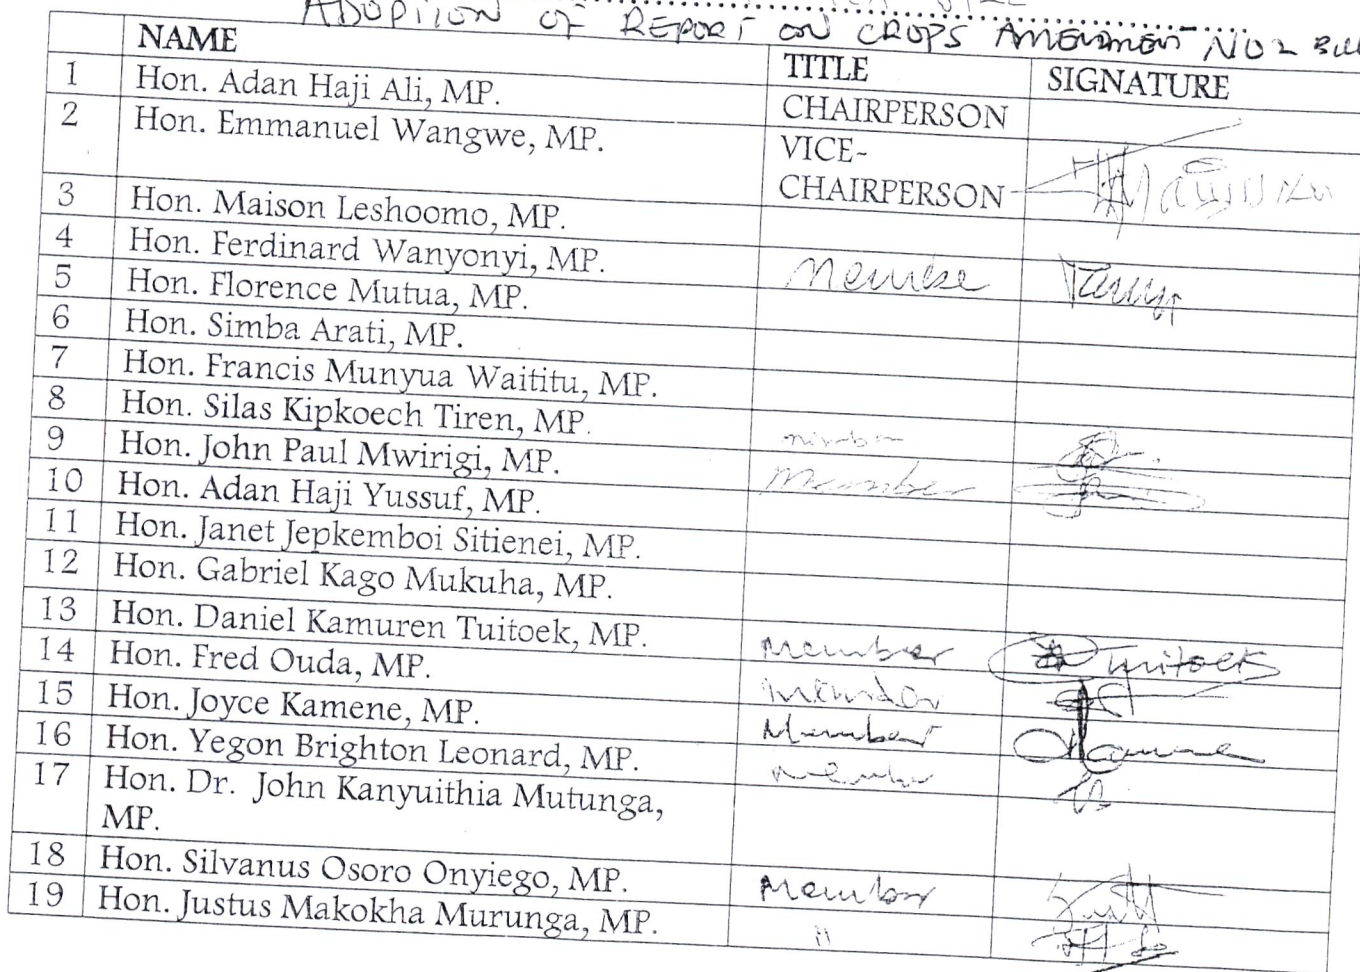 ADOPTION OF REPORT ON CROPS AMENDMENT NO 2 Bill
NAME TITLE SIGNATURE
1 Hon. Adan Haji Ali, MP. CHAIRPERSON
2 Hon. Emmanuel Wangwe, MP. VICE-
CHAIRPERSON
3 Hon. Maison Leshoomo, MP.
4 Hon. Ferdinard Wanyonyi, MP. Member
5 Hon. Florence Mutua, MP.
6 Hon. Simba Arati, MP.
7 Hon. Francis Munyua Waititu, MP.
8 Hon. Silas Kipkoech Tiren, MP. member
9 Hon. John Paul Mwirigi, MP. Member
10 Hon. Adan Haji Yussuf, MP.
11 Hon. Janet Jepkemboi Sitienei, MP.
12 Hon. Gabriel Kago Mukuha, MP.
13 Hon. Daniel Kamuren Tuitoek, MP. Member Tuitoek
14 Hon. Fred Ouda, MP. member
15 Hon. Joyce Kamene, MP. Member Kamene
16 Hon. Yegon Brighton Leonard, MP. member
17 Hon. Dr. John Kanyuithia Mutunga,
MP.
18 Hon. Silvanus Osoro Onyiego, MP. Member
19 Hon. Justus Makokha Murunga, MP. "